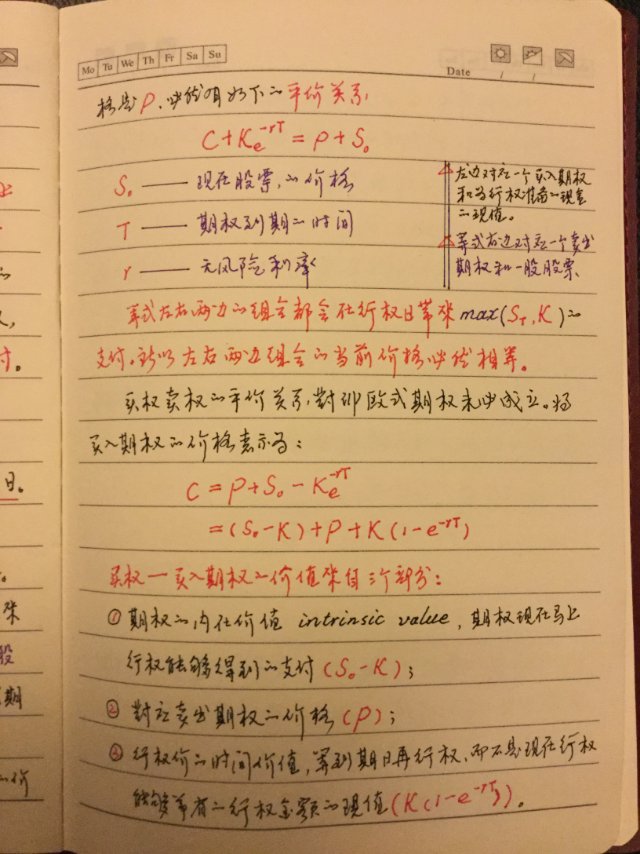 Mo Tu We Th Fr Sa Su
Date / /
格是P，必然有如下的平价关系，
C+Ke^-rT = P+S₀
S₀ —— 现在股票的价格
T —— 期权到期的时间
r —— 无风险利率
左边对应一个买入期权
和为行权准备的现金
的现值。
等式右边对应一个卖出
期权和一股股票
等式左右两边的组合都会在行权日带来max(S_T, K)的
支付，所以左右两边组合的当前价格必然相等。
买权卖权的平价关系，對非欧式期权未必成立。将
买入期权的价格表示为：
C = P+S₀-Ke^-rT
=(S₀-K)+P+K(1-e^-rT)
买权一买入期权的价值来自三个部分：
① 期权的内在价值 intrinsic value，期权现在马上
行权能够得到的支付(S₀-K)；
② 對应卖出期权的价格(P)；
③ 行权价的时间价值，等到期日再行权，而不是现在行权
能够节省的行权金额的现值(K(1-e^-rT))。
日。